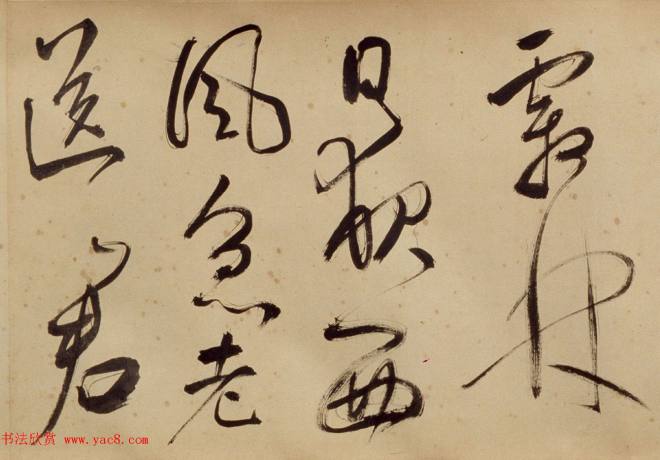 霜林
日西
風急老
送君
书法欣赏 www.yac8.com